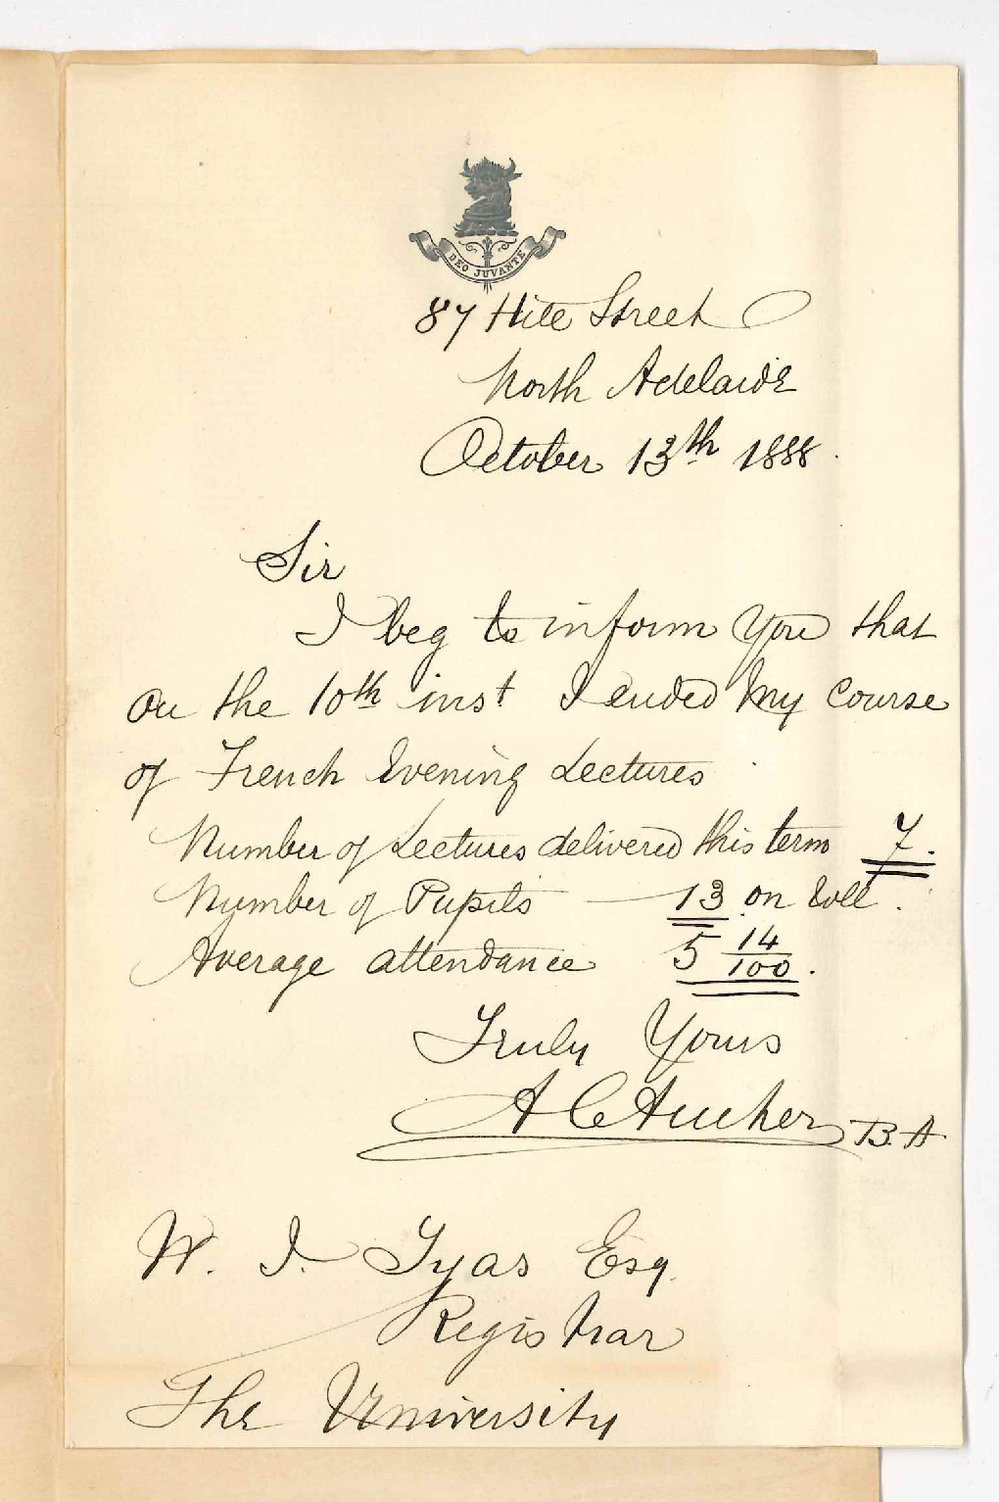 DEO JUVANTE
87 Hill Street
North Adelaide
October 13th 1888.
Sir
I beg to inform You that
on the 10th inst I ended My Course
of French Evening Lectures
Number of Lectures delivered this term 7.
Number of Pupils — 13 on Roll.
Average attendance 5 14/100.
Truly Yours
A C Aucher B.A
W. J. Tyas Esq.
Registrar
The University